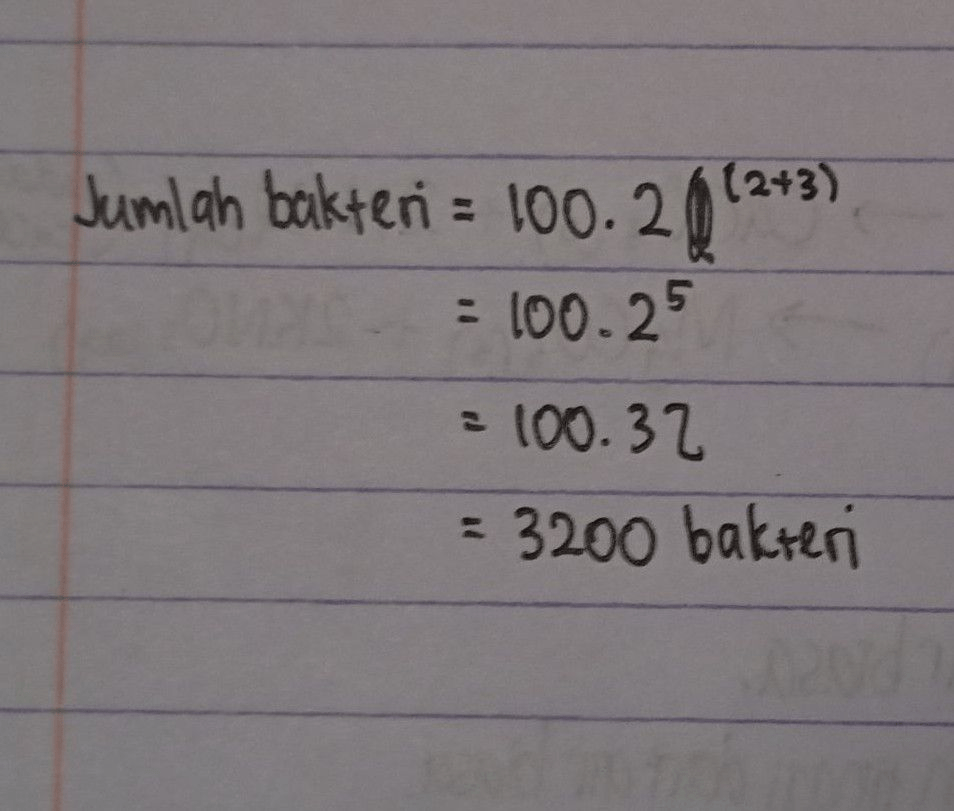 Jumlah bakteri = 100.2 (2+3)
= 100.2⁵
= 100.32
= 3200 bakteri